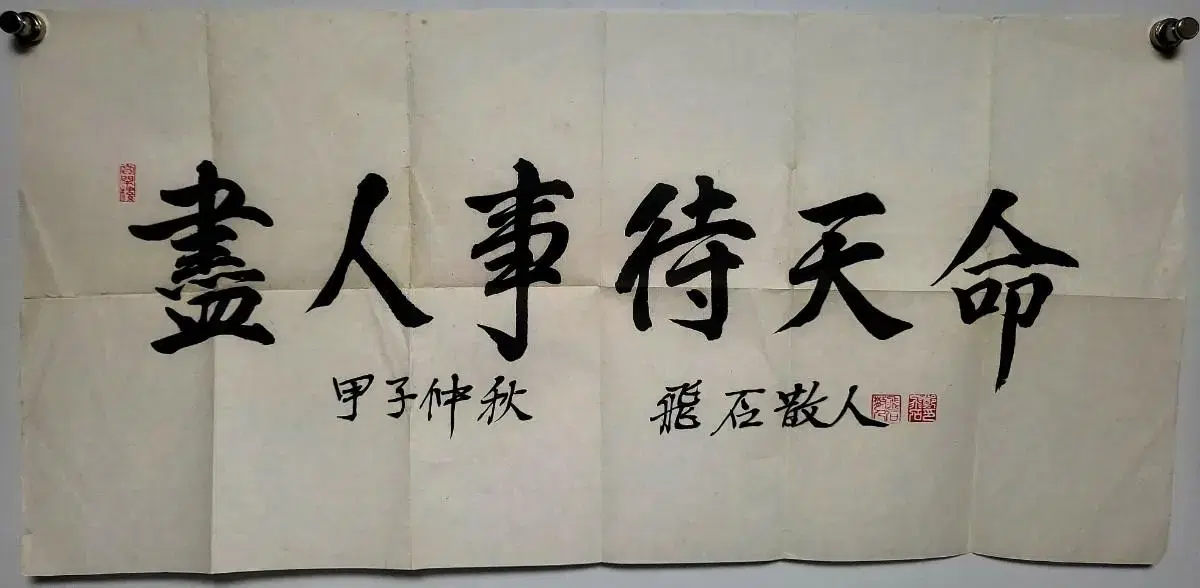 盡人事待天命
甲子仲秋
飛石散人